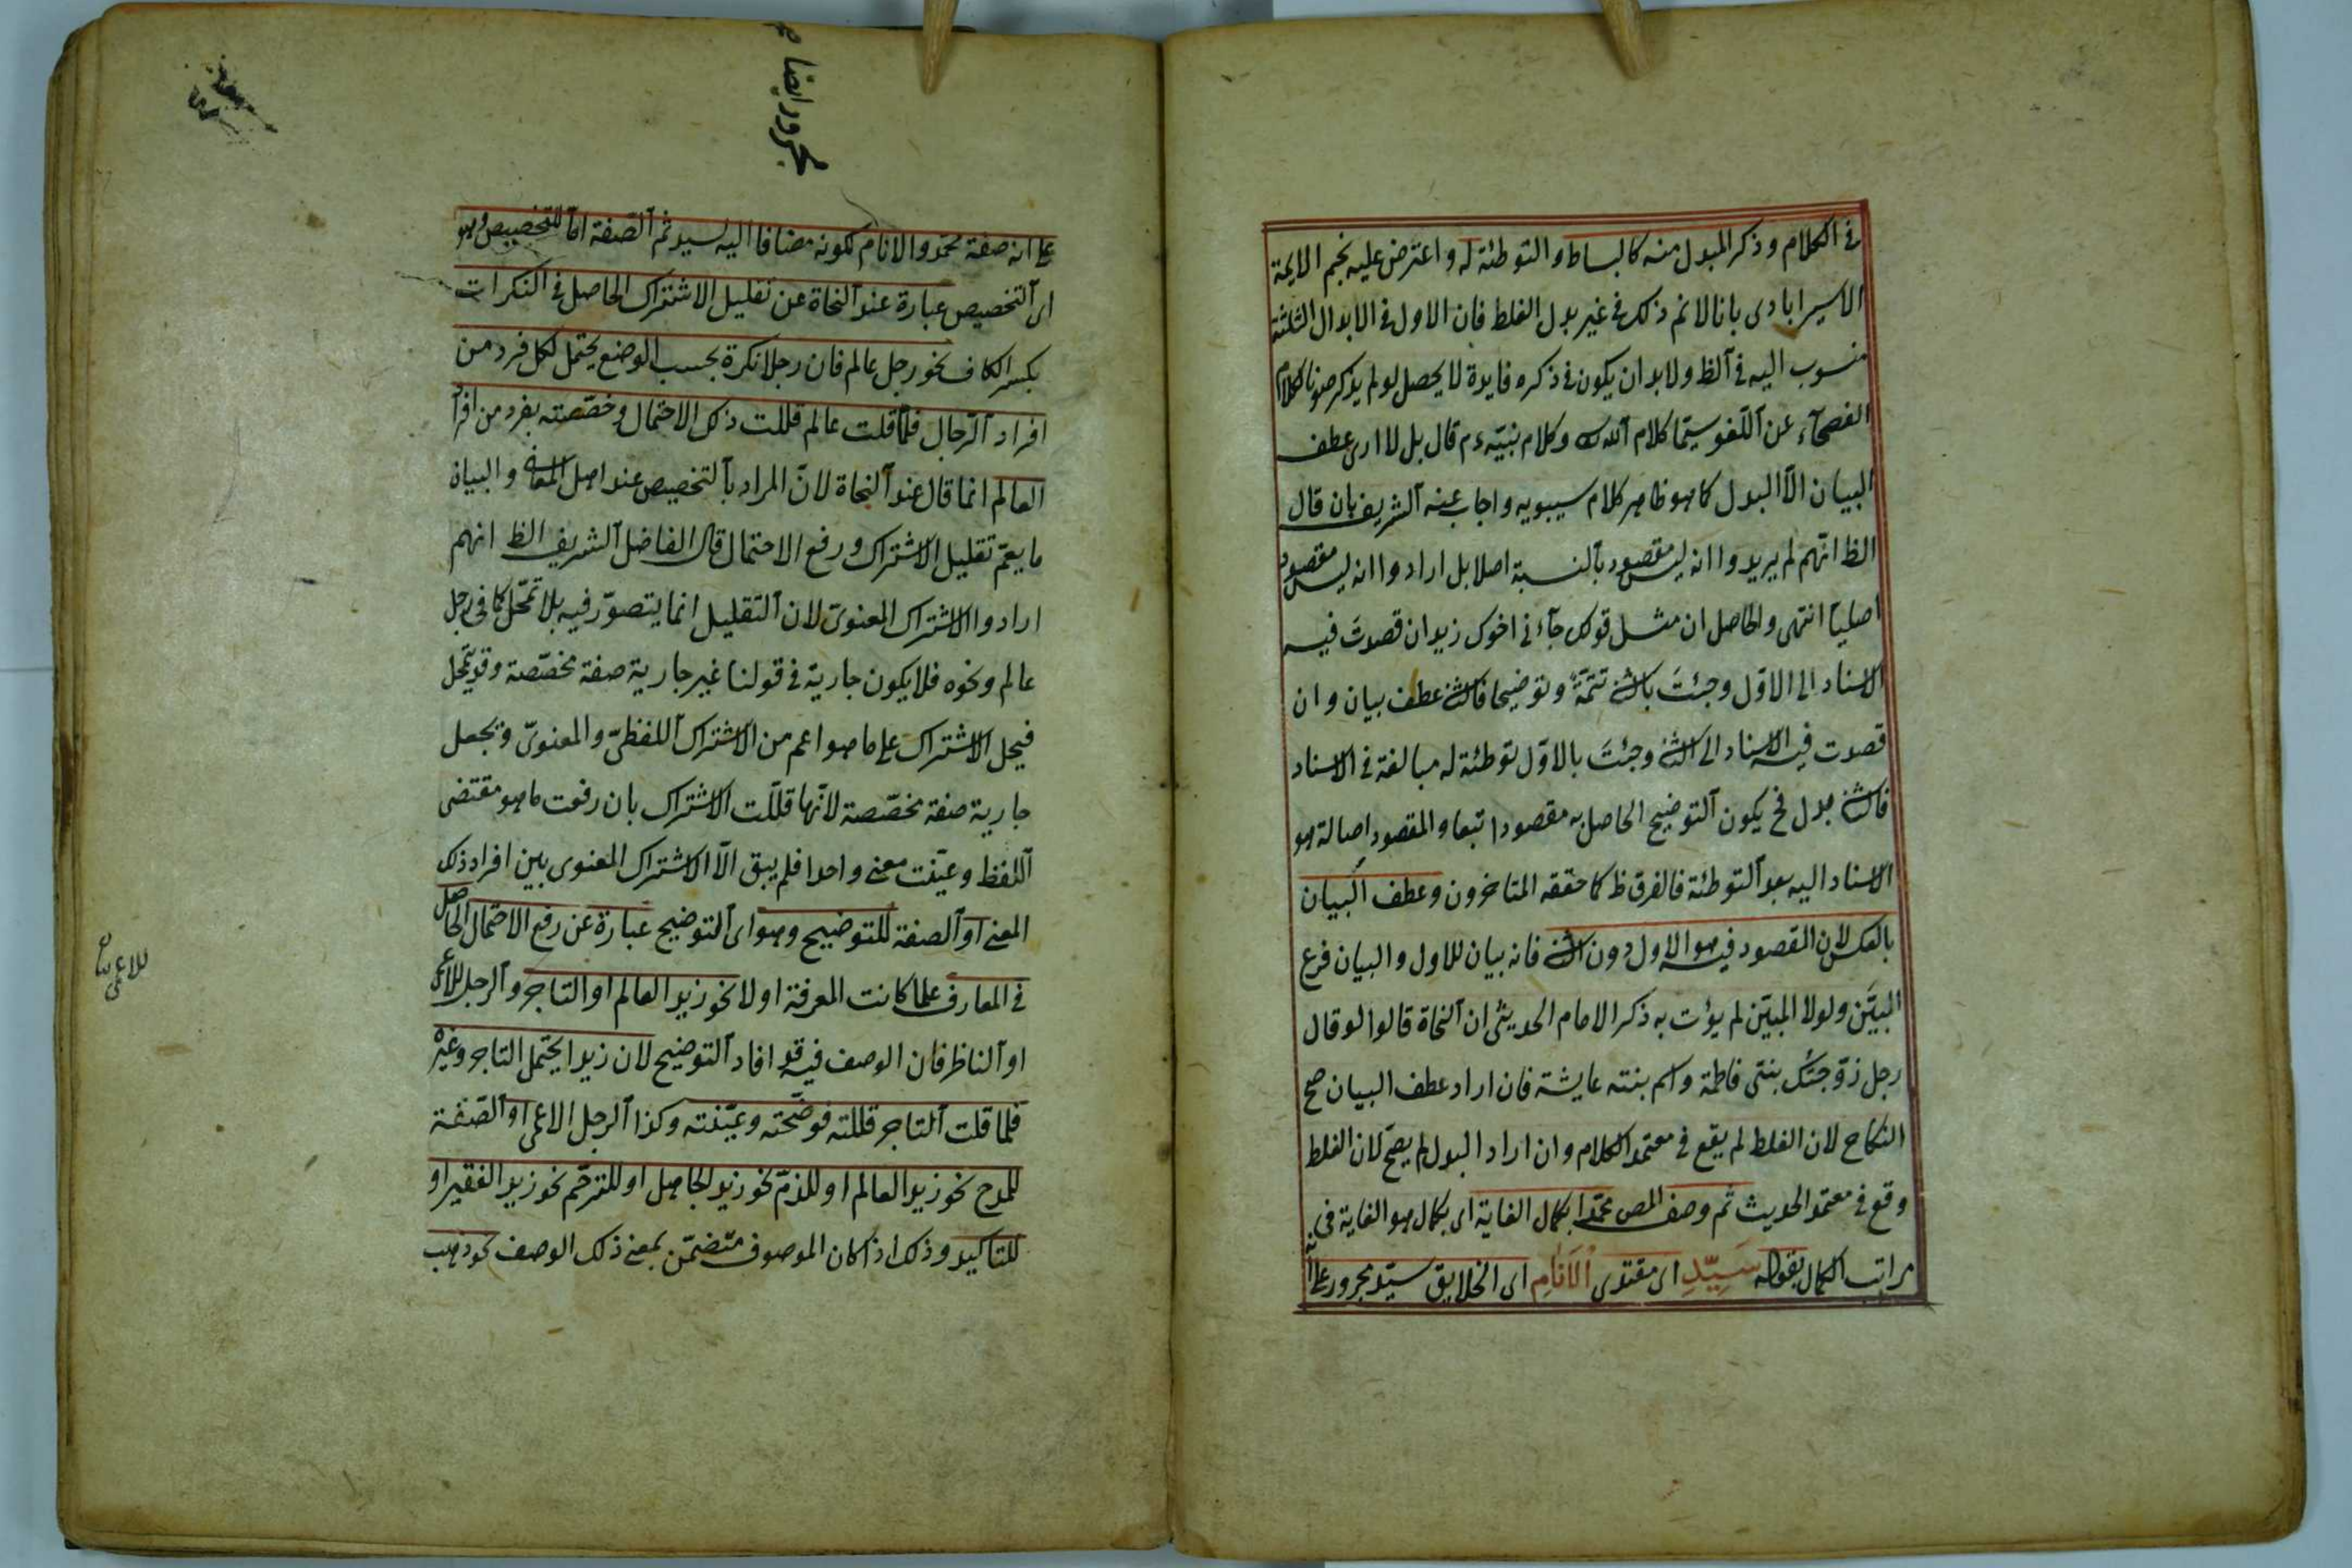 في الكلام وذكر المبدل منه كالبساط والتوطئة له واعترض عليه نجم الايمة
الاسيرابادى بانا لا نم ذلك في غير بدل الغلط فان الاول في الابدال الثلثة
منسوب اليه في الظ ولا بد ان يكون في ذكره فايدة لا يحصل لو لم يذكر صونا لكلام
الفصحآء عن اللغو سيما كلام الله وكلام نبيه ءم قال بل لا ارى عطف
البيان الا البدل كما هو ظاهر كلام سيبويه واجاب عنه الشريف بان قال
الظ انهم لم يريدوا انه ليس مقصود بالنسبة اصلا بل ارادوا انه ليس مقصود
اصليا انتهى والحاصل ان مثل قولك جآءنى اخوك زيد ان قصدت فيه
الاسناد الى الاول وجئت بالثنى تتمة وتوضيحا فالثنى عطف بيان وان
قصدت فيه الاسناد الى الثنى وجئت بالاول توطئة له مبالغة في الاسناد
فالثنى بدل فح يكون التوضيح الحاصل به مقصودا تبعا والمقصود اصالة هو
الاسناد اليه بعد التوطئة فالفرق ظ كما حققه المتاخرون وعطف البيان
بالعكس لان المقصود فيه هو الاول دون الثنى فانه بيان للاول والبيان فرع
المبين ولولا المبين لم يؤت به ذكر الامام الحديثى ان النحاة قالوا لو قال
رجل زوجتك بنتى فاطمة واسم بنته عايشة فان اراد عطف البيان صح
النكاح لان الغلط لم يقع في معتمد الكلام وان اراد البدل لم يصح لان الغلط
وقع في معتمد الحديث ثم وصف المص محمدا بكمال الغاية اى بكمال هو الغاية في
مراتب الكمال بقوله سيد اى مقتدى الانام اى الخلايق سيد مجرور على انه
مجرور ايضا
على انه صفة محمد والانام لكونه مضافا اليه لسيد ثم الصفة اما للتخصيص وهو
اى التخصيص عبارة عند النحاة عن تقليل الاشتراك الحاصل في النكرات
بكسر الكاف نحو رجل عالم فان رجلا نكرة بحسب الوضع يحتمل لكل فرد من
افراد الرجال فلما قلت عالم قللت ذلك الاحتمال وخصصته بفرد من افرآ
العالم انما قال عند النحاة لان المراد بالتخصيص عند اهل المعانى والبيان
ما يعم تقليل الاشتراك ورفع الاحتمال قال الفاضل الشريف الظ انهم
ارادوا الاشتراك المعنوى لان التقليل انما يتصور فيه بلا تمحل كما في رجل
عالم ونحوه فلا يكون جارية في قولنا غير جارية صفة مخصصة وقد يتمحل
فيحل الاشتراك على ما هو اعم من الاشتراك اللفظى والمعنوى ويجعل
جارية صفة مخصصة لانها قللت الاشتراك بان رفعت ما هو مقتضى
اللفظ وعينت معنى واحدا فلم يبق الا الاشتراك المعنوى بين افراد ذلك
المعنى او الصفة للتوضيح وهو اى التوضيح عبارة عن رفع الاحتمال الحاصل
في المعارف علما كانت المعرفة او لا نحو زيد العالم او التاجر والرجل للاعمى
او الناظر فان الوصف فيه قد افاد التوضيح لان زيدا يحتمل التاجر وغيره
فلما قلت التاجر قللته فوضحته وعينته وكذا الرجل الاعمى او الصفة
للمدح نحو زيد العالم او للذم نحو زيد الجاهل او للترحم نحو زيد الفقير او
للتاكيد وذلك اذا كان الموصوف متضمن بمعنى ذلك الوصف نحو ذهب
للاعمى